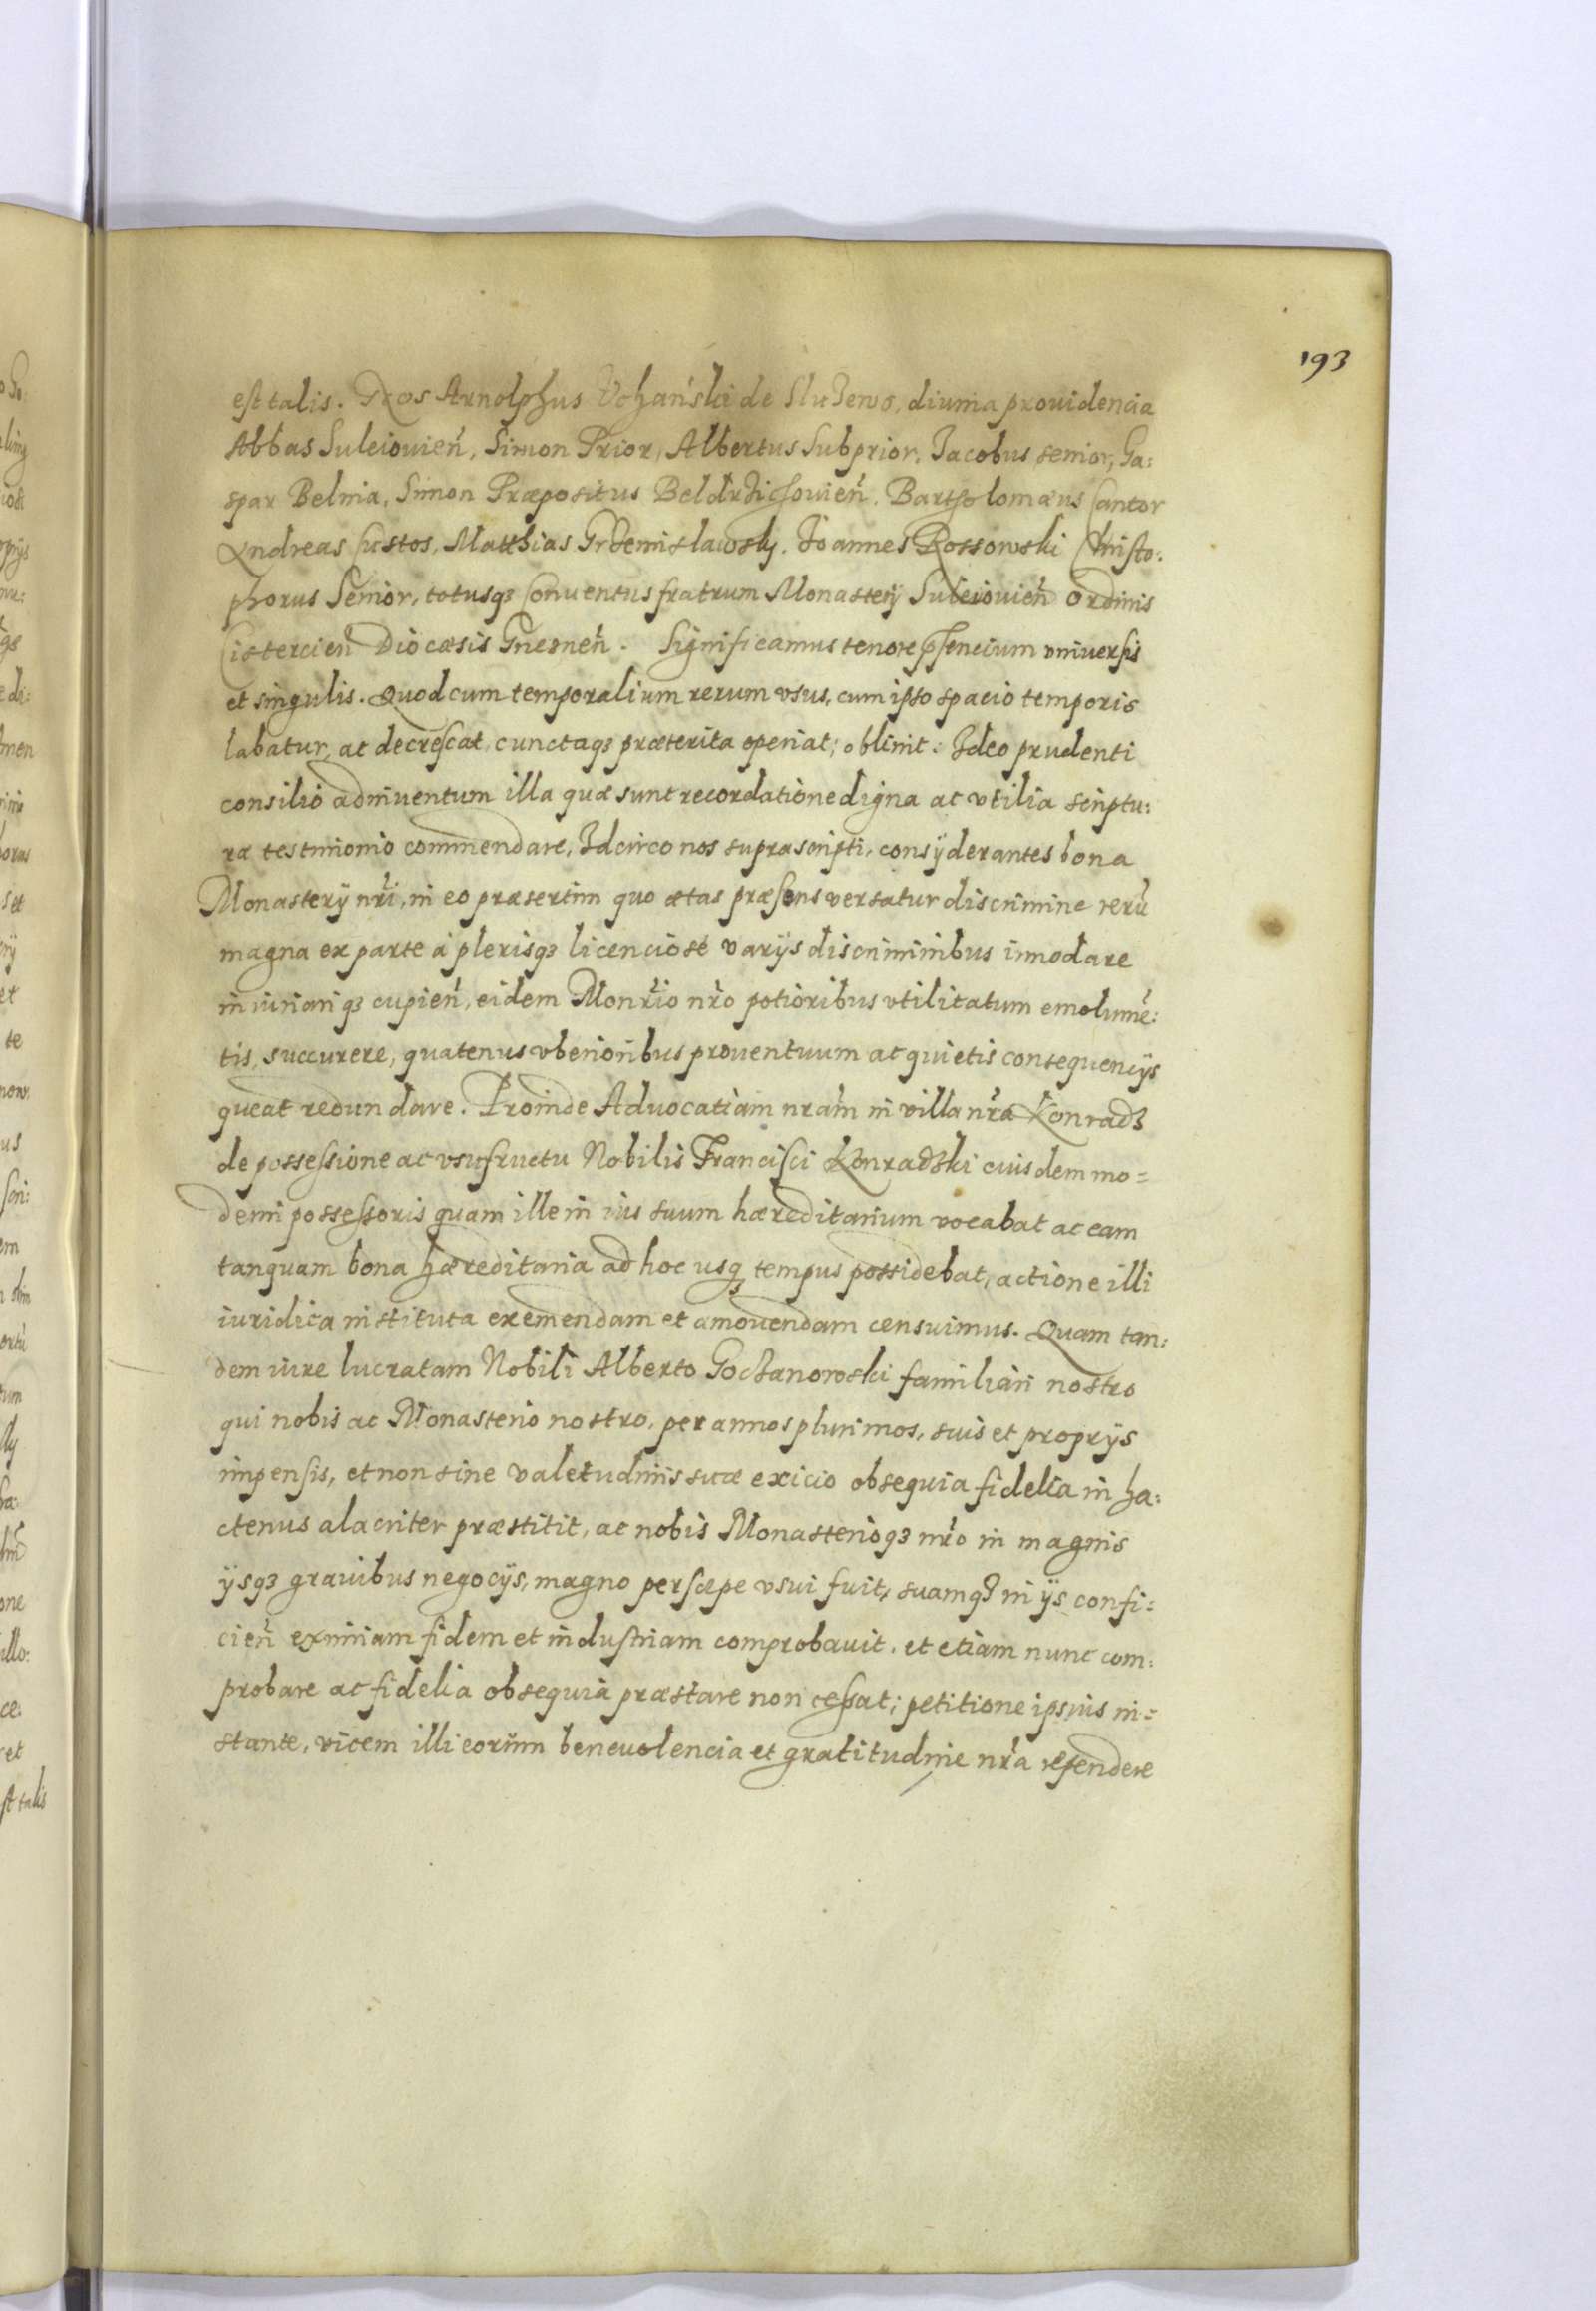 193
est talis. Nos Arnolphus Vchański de Sluzewo, diuina prouidencia
Abbas Suleiouień, Simon Prior, Albertus Subprior, Jacobus senior, Ga:
spar Belnia, Simon Præpositus Bartholomæus Cantor
Andreas Custos, Matthias Joannes Rossowski Christo:
phorus Senior, totusqз Conuentus fratrum Monasterÿ Suleiouień Ordinis
Cistercień Diocæsis Gnesneń. Significamus tenore pñsencium vniuersis
et singulis. Quod cum temporalium rerum vsus, cum ipso spacio temporis
labatur, ac decrescat, cunctaqз præterita operiat; oblinit: Ideo prudenti
consilio adinuentum illa quæ sunt recordatione digna ac vtilia scriptu:
ræ testimonio commendare, Idcirco nos suprascripti, consÿderantes bona
Monasterÿ nr̃i, in eo præsertim quo ætas præsens versatur discrimine rerũ
magna ex parte à plerisqз licenciosè varÿs discriminibus innodare
iniurianqз cupień, eidem Monr̃io nr̃o potioribus vtilitatum emolumẽ:
tis, succurere, quatenus vberioribus prouentuum ac quietis consequencÿs
queat redundare. Proinde Aduocatiam nrãm in villa nr̃a Konradз
de possessione ac vsufructu Nobilis Francisci Konradзki euisdem mo=
derni possessoris quam ille in ius suum hæreditarium vocabat ac eam
tanquam bona hæreditaria ad hoc usq tempus possidebat, actione illi
iuridica instituta exemendam et amouendam censuimus. Quam tan:
dem iure lucratam Nobili Alberto Goczanowski familiari nostro
qui nobis ac Monasterio nostro, per annos plurimos, suis et proprÿs
impensis, et non sine valetudinis suæ exicio obsequia fidelia in ha:
ctenus alacriter præstitit, ac nobis Monasterioqз nr̃o in magnis
ÿsqз grauibus negocÿs, magno persæpe vsui fuit, suamqз in ÿs confi:
cień eximiam fidem et industriam comprobauit, et etiam nunc com:
probare ac fidelia obsequia præstare non cessat; petitione ipsius in=
stante, vicem illi eorum beneuolencia et gratitudine nr̃a rependere